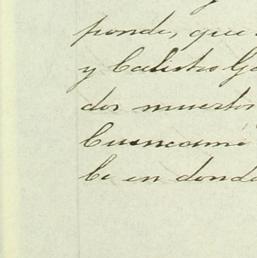 ponde, que
y Calistro Ga
dos muertos
Cuencamé
be en donde